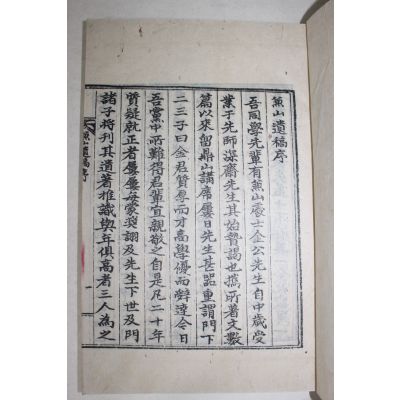 蕉山遺稿序
吾同學先輩有蕉山處士金公先生自中歲受
業于先師深齋先生其始贄謁也攜所著文數
篇以來留鼎山講席屢日先生甚器重謂門下
二三子曰金君質厚而才高學優而辭達今日
吾黨中所難得君輩宜親敬之自是凡二十年
質疑就正者屢屢每蒙奬詡及先生下世及門
諸子將刊其遺著推識與年俱高者三人為之
蕉山遺稿序
一